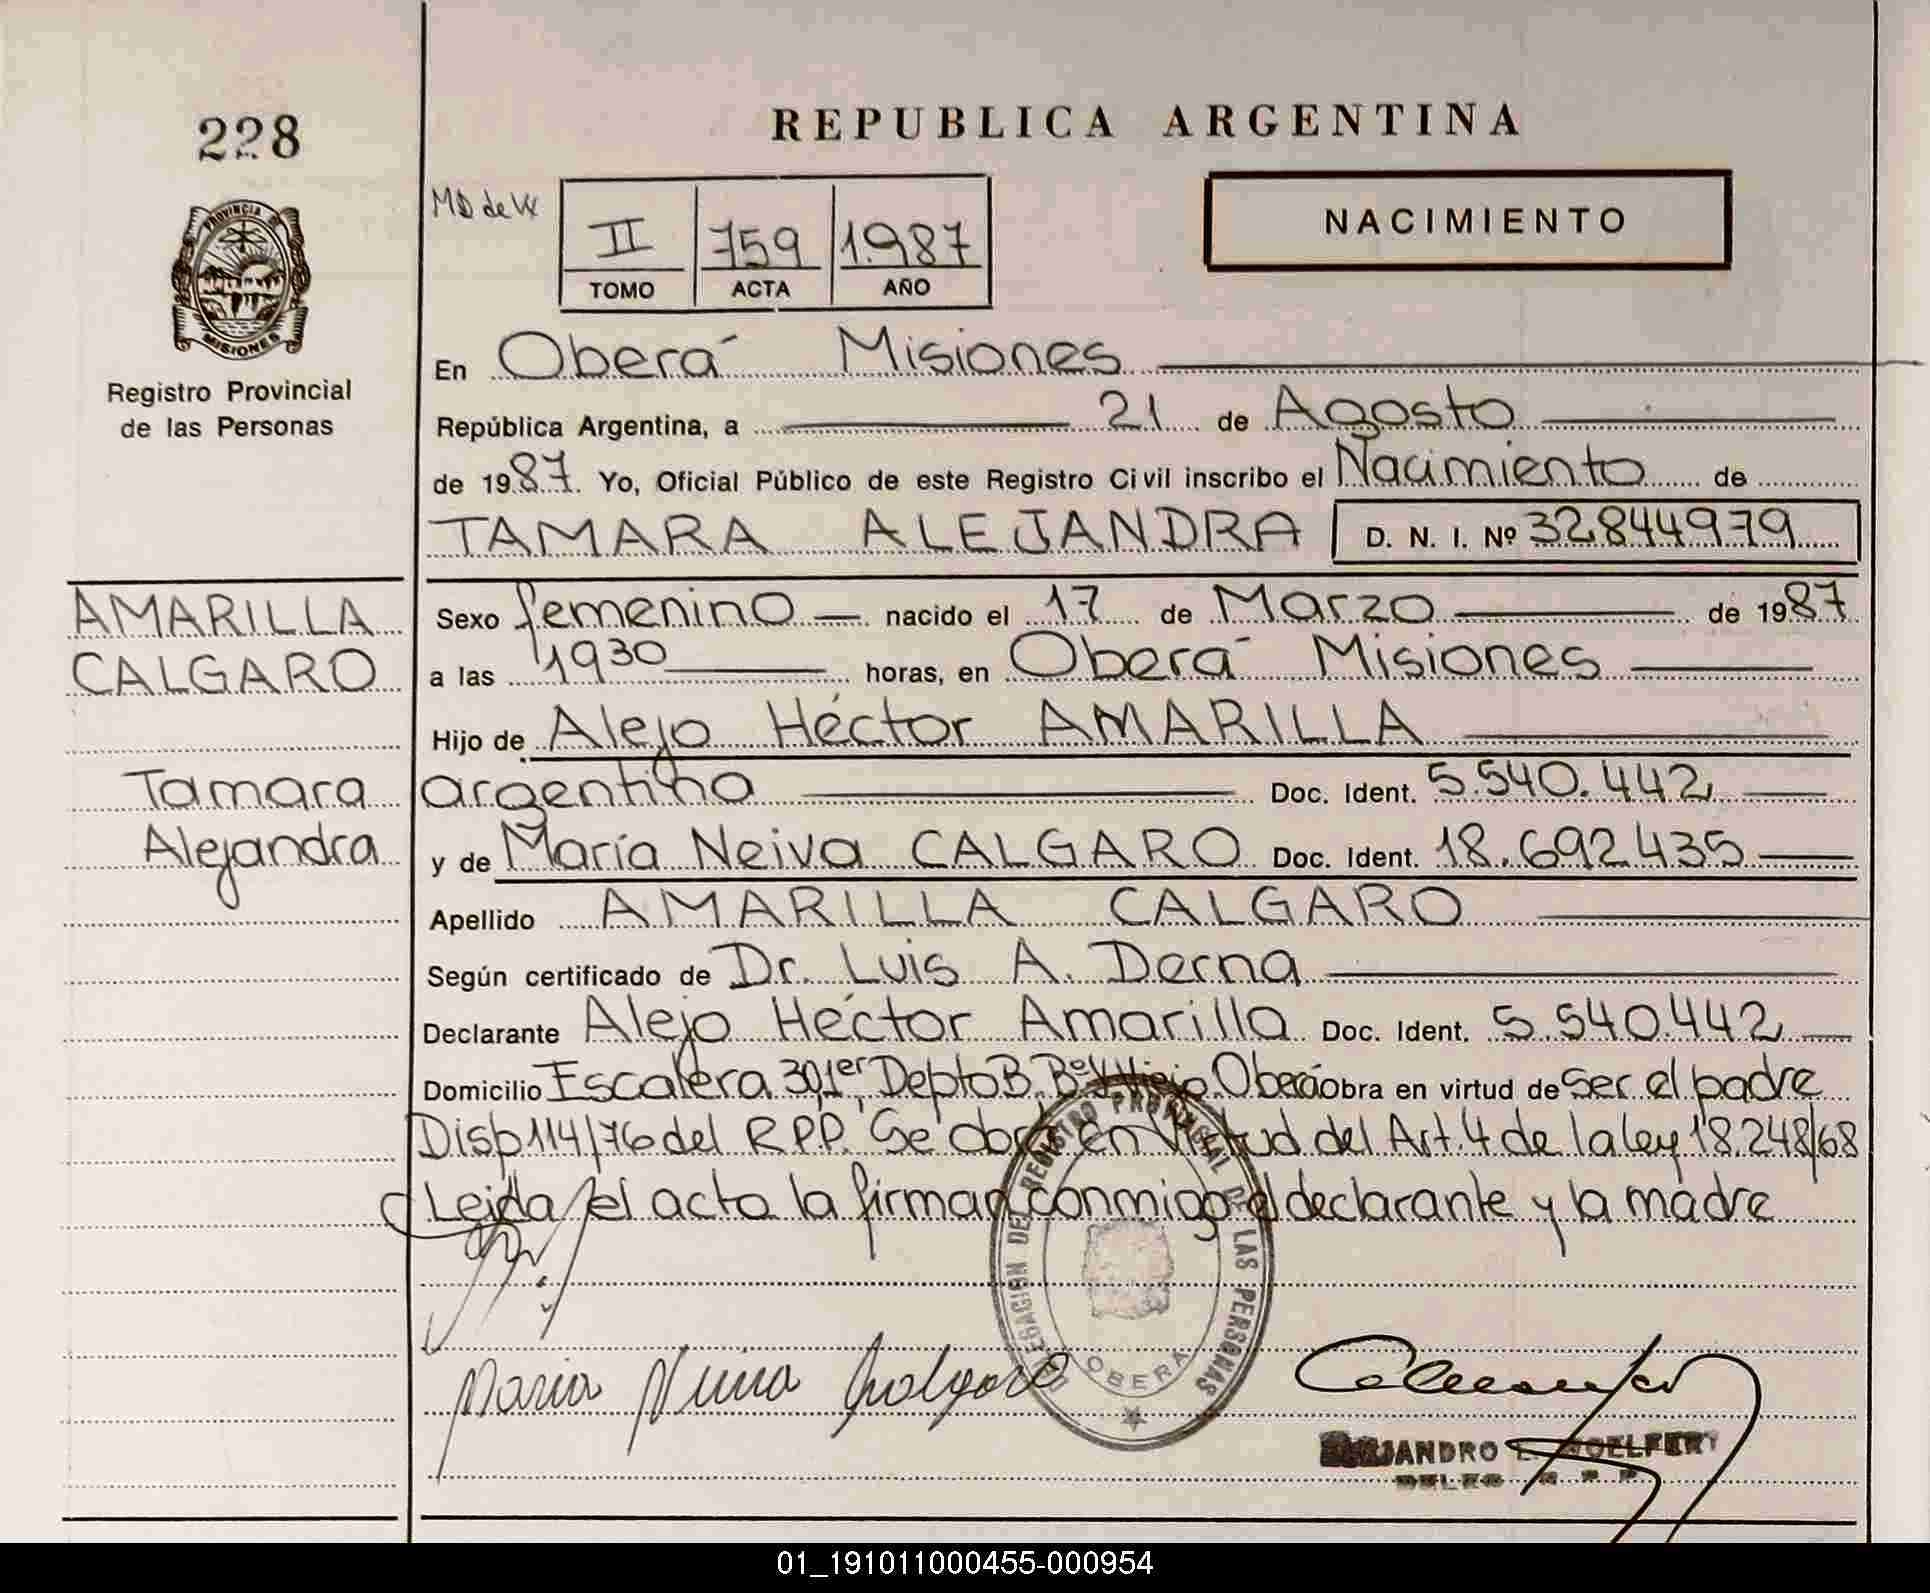 228
REPUBLICA ARGENTINA
PROVINCIA DE
MISIONES
Registro Provincial
de las Personas
II 759 1.987
TOMO ACTA AÑO
NACIMIENTO
En Oberá Misiones
República Argentina, a 21 de Agosto
de 1987. Yo, Oficial Público de este Registro Civil inscribo el Nacimiento de
TAMARA ALEJANDRA D. N. I. Nº 32.844.979
AMARILLA
CALGARO
Tamara
Alejandra
Sexo femenino nacido el 17 de Marzo de 1987
a las 1930 horas, en Oberá Misiones
Hijo de Alejo Héctor AMARILLA
argentino Doc. Ident. 5.540.442
y de María Neiva CALGARO Doc. Ident. 18.692.435
Apellido AMARILLA CALGARO
Según certificado de Dr. Luis A. Derna
Declarante Alejo Héctor Amarilla Doc. Ident. 5.540.442
Domicilio Escalera 30,1er Depto B. Bº V. Viejo. Oberá obra en virtud de ser el padre
Disp 114/76 del R.P.P. Se obra en Virtud del Art. 4 de la ley 18.248/68
Leída el acta la firman conmigo el declarante y la madre
DELEGACION DEL REGISTRO PROVINCIAL DE LAS PERSONAS
OBERA
Maria Neiva Calgaro
01_191011000455-000954